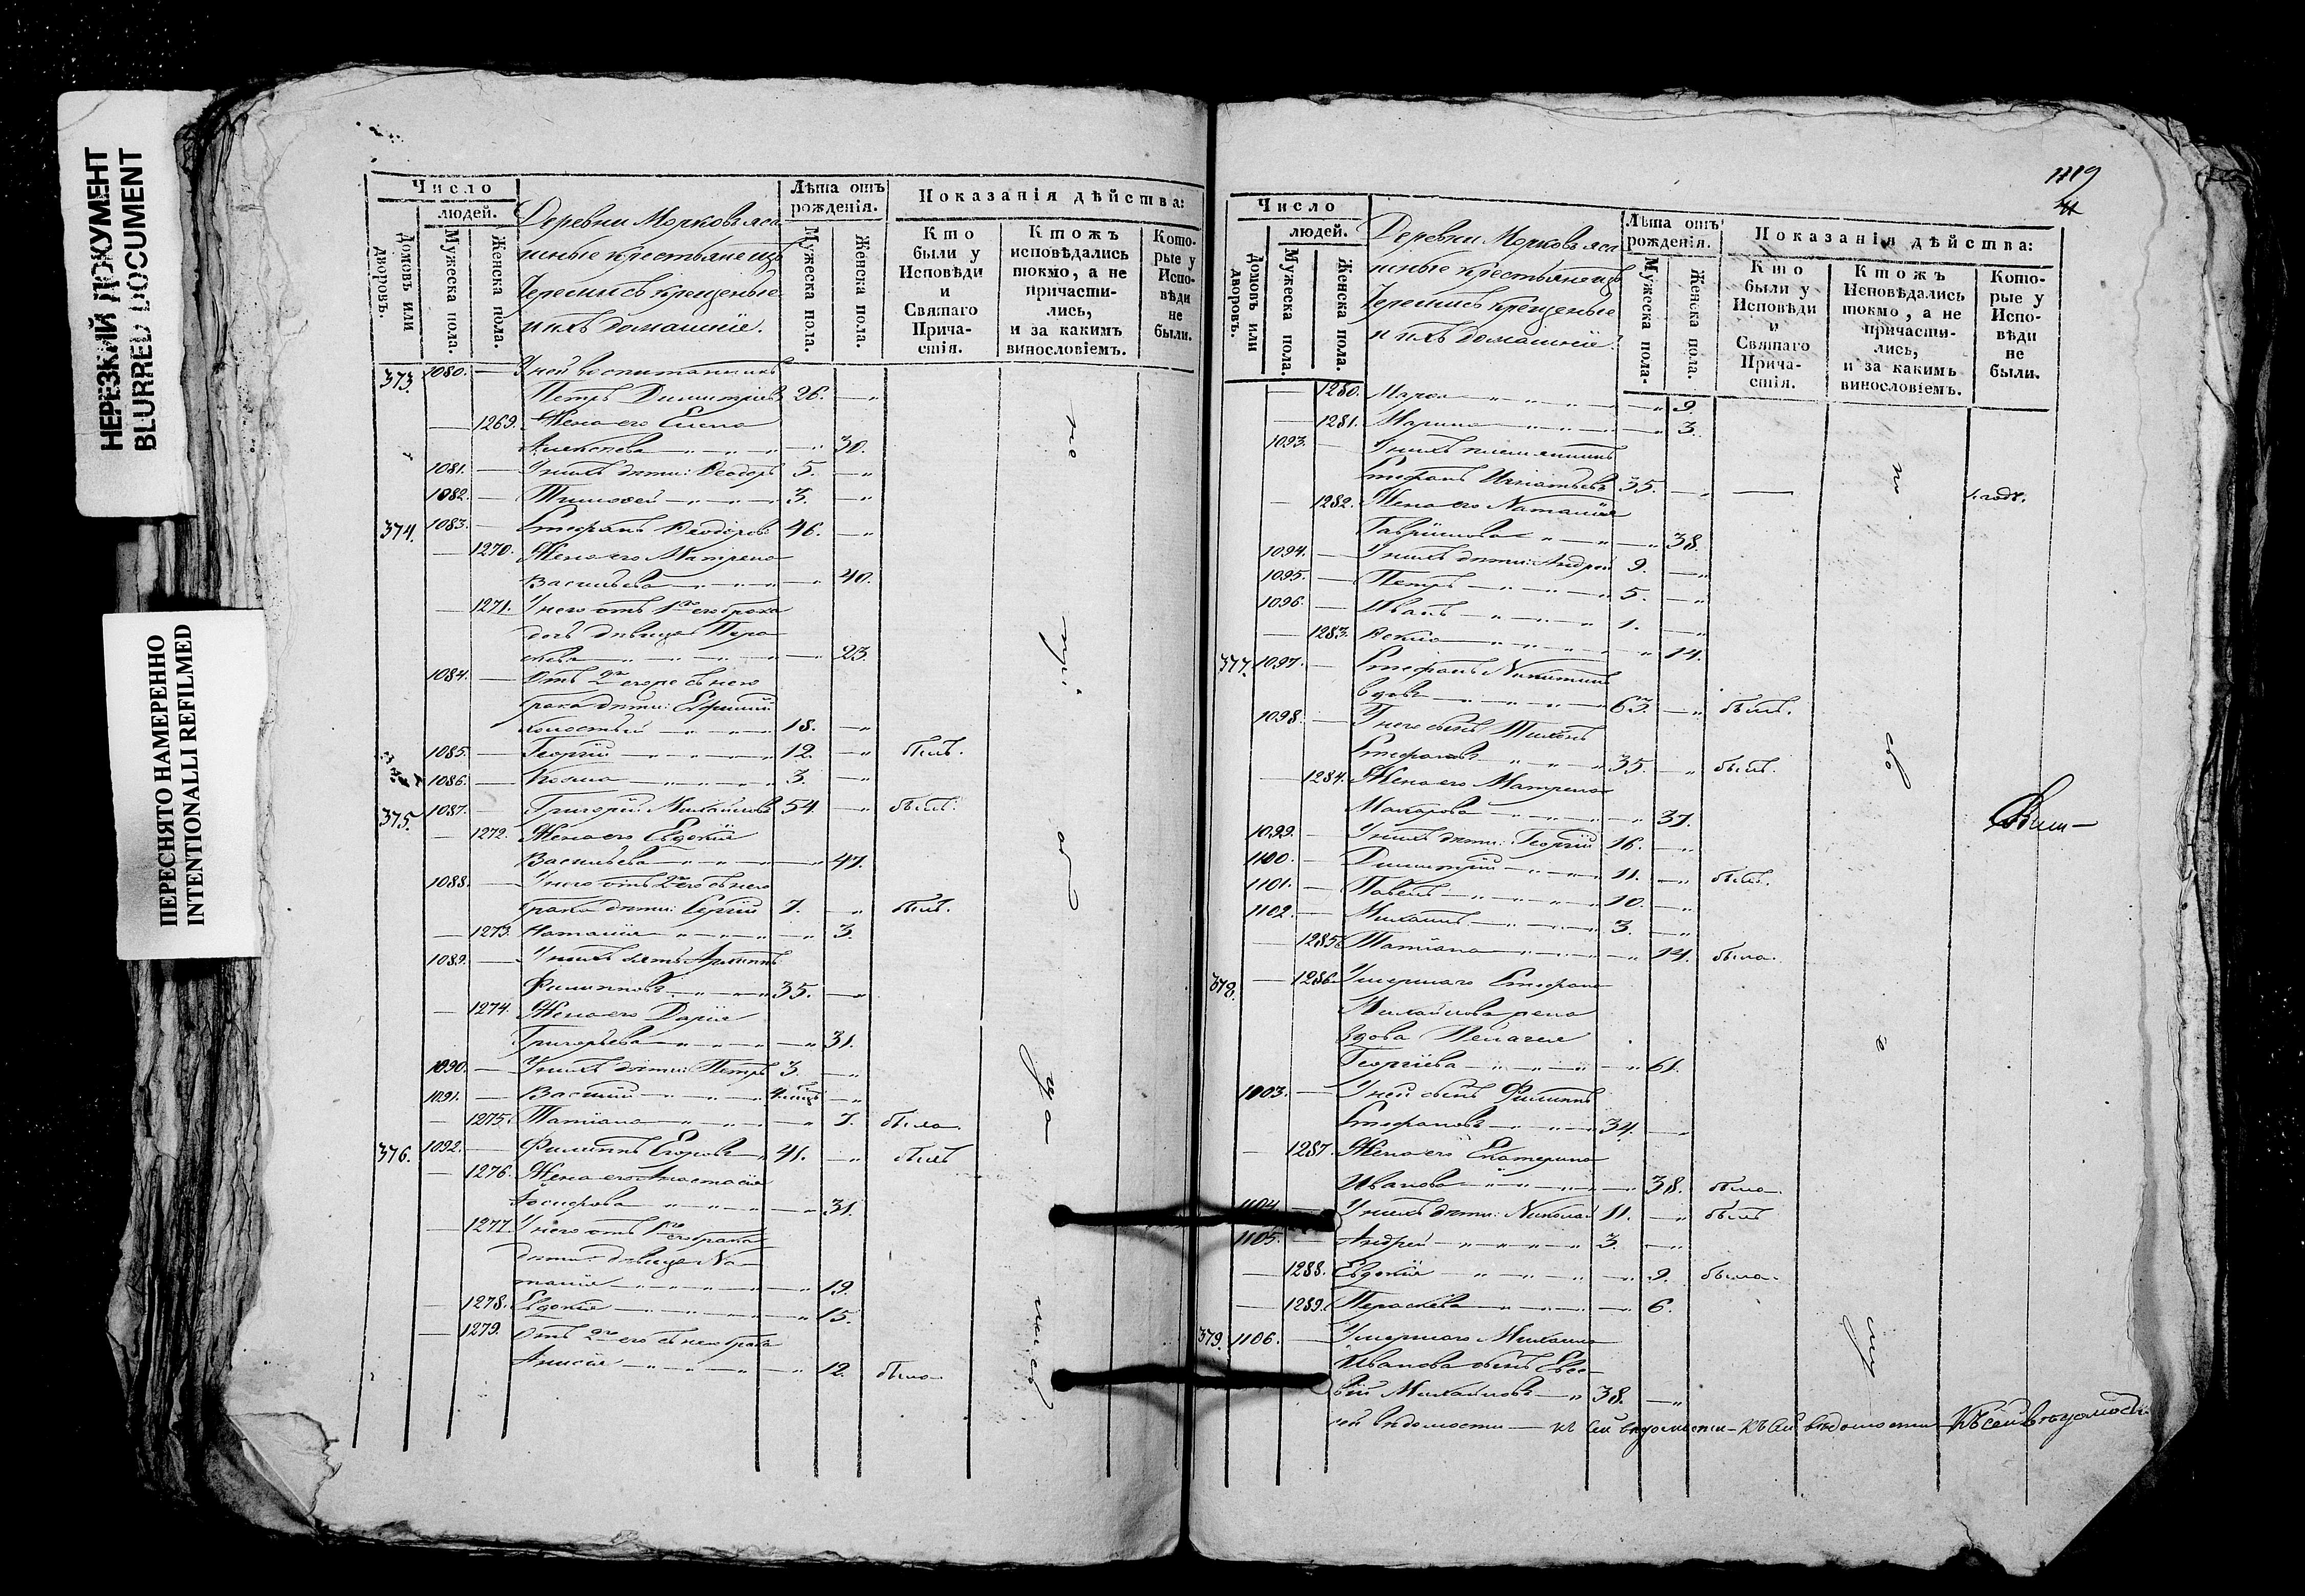 НЕРЕЗКИЙ ДОКУМЕНТ
BLURRED DOCUMENT
ПЕРЕСНЯТО НАМЕРЕННО
INTENTIONALLI REFILMED
Число
людей.
Домовъ или дворовъ.
Мужеска пола.
Женска пола.
Деревни Морковъ яса
шные крестьяне изъ
Черемисъ крещеные
и ихъ домашніе.
Лѣта отъ рожденія.
Мужеска пола.
Женска пола.
Показанія дѣйства:
Кто были у Исповѣди и Святаго Причастія.
Ктожъ исповѣдались токмо, а не причастились, и за какимъ винословіемъ.
Которые у Исповѣди не были.
373. 1080. — У ней воспитанникъ
Петръ Димитріевъ 26. — "
— 1269. Жена его Елена
Алексѣева — " — " — " 30.
1081. — У нихъ дѣти: Ѳеодоръ 5. — "
1082. — Тимоѳей — " — " — 3. — "
374. 1083. — Стефанъ Ѳеодоровъ 46. — "
— 1270. Жена его Матрена
Васильева — " — " — " 40.
— 1271. У него отъ 1го его брака
дочь дѣвица Пара
скева — " — " — " — 23.
1084. — Отъ 2го его съ нею
брака дѣти: Ефимій
холостый — " — " 18. — "
1085. — Георгій — " — " — " 12. — " былъ.
1086. — Козма — " — " — " 3. — "
375. 1087. — Григорій Михайловъ 54. — " былъ.
— 1272. Жена его Евдокія
Васильева — " — " — " 47.
1088. — У него отъ 2го его съ нею
брака дѣти: Сергій 7. — " былъ.
— 1273. Наталія — " — " — " 3.
1089. — У нихъ зять Архиппъ
Филипповъ — " — " 35. — "
— 1274. Жена его Дарія
Григорьева — " — " — " 31.
1090. — У нихъ дѣти: Петръ 3. — "
1091. — Василій — " — " — "
— 1275. Татіана — " — " — " 7. была.
376. 1092. — Филиппъ Егоровъ — " 41. — " былъ
— 1276. Жена его Анастасія
Іосифова — " — " — " 31.
— 1277. У него отъ 1го его брака
дѣти: дѣвица На
талія — " — " — " 19.
— 1278. Евдокія — " — " — " 15.
— 1279. Отъ 2го его съ нею брака
Анисія — " — " — " 12. была
1119
Число
людей.
Домовъ или дворовъ.
Мужеска пола.
Женска пола.
Деревни Морковъ яса
шные крестьяне изъ
Черемисъ крещеные
и ихъ домашніе.
Лѣта отъ рожденія.
Мужеска пола.
Женска пола.
Показанія дѣйства:
Кто были у Исповѣди и Святаго Причастія.
Ктожъ Исповѣдались токмо, а не причастились, и за какимъ винословіемъ.
Которые у Исповѣди не были.
— 1280. — " — " — " 9.
— 1281. Марина — " — " — " 3.
1093. — У нихъ племянникъ
Стефанъ Игнатьевъ 35. — "
— 1282. Жена его Наталія
Гавріилова — " — " — " 38.
1094. — У нихъ дѣти: Андрей 9. — "
1095. — Петръ — " — " — " 5. — "
1096. — Иванъ — " — " — " 1. — "
— 1283. Ѳекла — " — " — " 14.
377. 1097. — Стефанъ Никитинъ
вдовъ — " — " — " 63. — " былъ.
1098. — У него сынъ Тихонъ
Стефановъ — " — " 35. — " былъ.
— 1284. Жена его Матрена
Макарова — " — " — " 37.
1099. — У нихъ дѣти: Георгій 16. — "
1100. — Димитрій — " — " 11. — " былъ.
1101. — Павелъ — " — " — " 10. — "
1102. — Михаилъ — " — " — " 3. — "
— 1285. Татіана — " — " — " 14. была.
378. — 1286. Умершаго Стефана
Михайлова жена
вдова Пелагея
Георгіева — " — " — " 61.
1103. — У ней сынъ Филиппъ
Стефановъ — " — " 34. — "
— 1287. Жена его Екатерина
Иванова — " — " — " 38. была.
1104. — У нихъ дѣти: Николай 11. — " былъ
1105. — Андрей — " — " — " 3. — "
— 1288. Евдокія — " — " — " 9. была.
— 1289. Параскева — " — " — " 6.
379. 1106. — Умершаго Михаила
Иванова сынъ Евсе
вій Михайловъ — " 38. — "
сей вѣдомости — къ сей вѣдомости — къ сей вѣдомости — къ сей вѣдомости